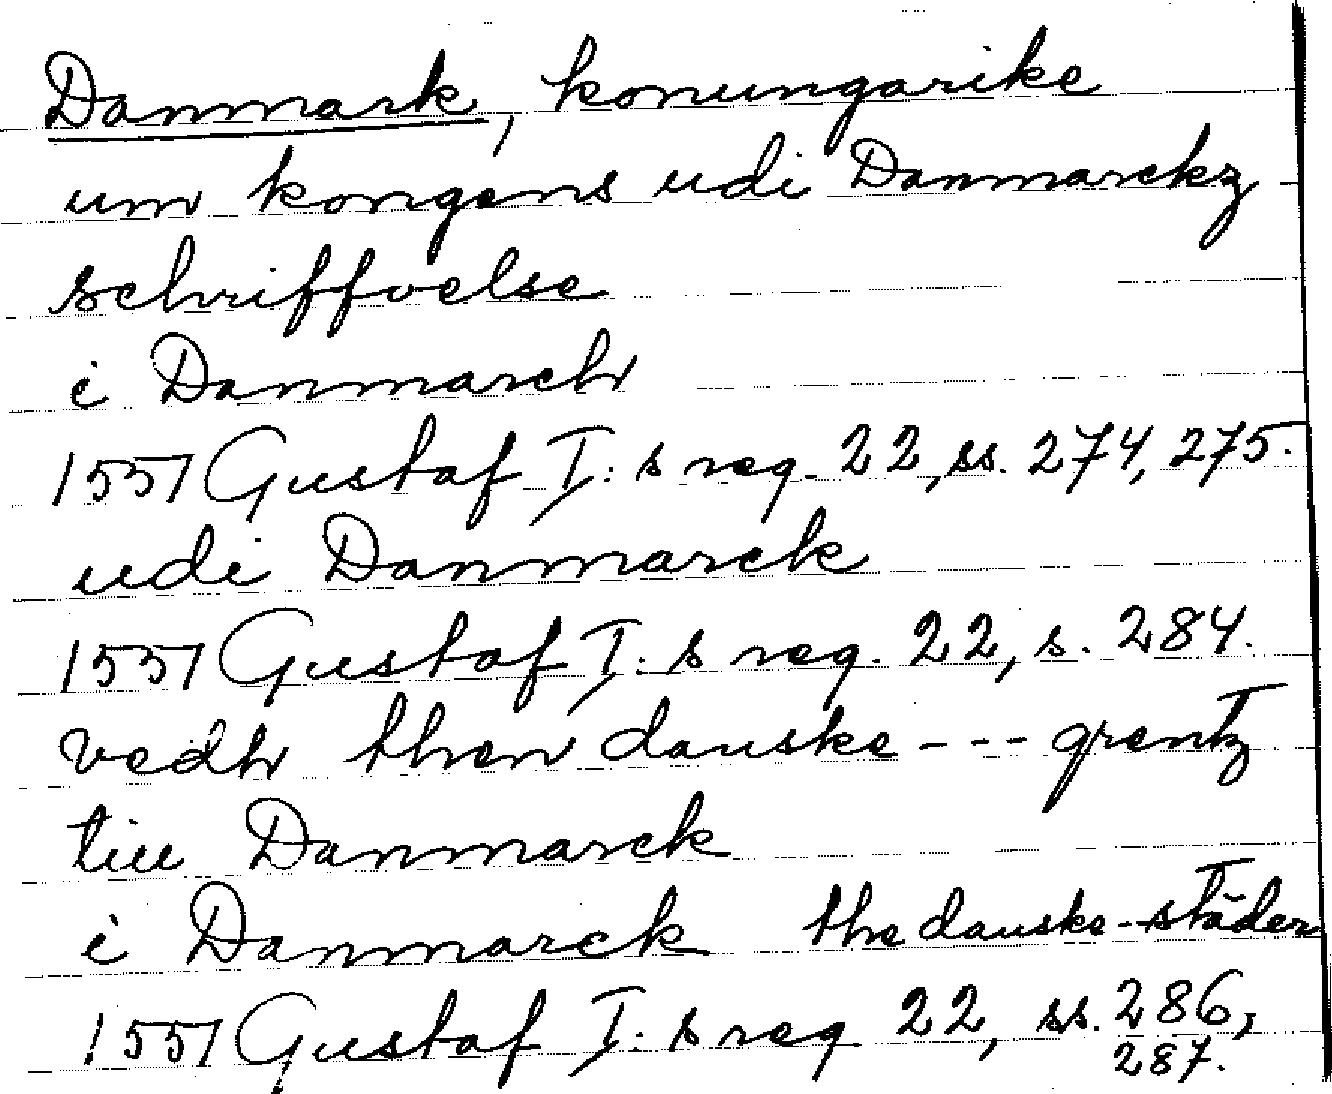 Danmark, konungarike
um kongens udi Danmarckz
schriffvelse
i Danmarch
1557 Gustaf I: s reg. 22, ss. 274, 275.
udi Danmarck
1557 Gustaf I: s reg. 22, s. 284.
vedh then danske --- grentz
till Danmarck
i Danmarck the danske -- städer
1557 Gustaf I: s reg 22, ss. 286,
287.